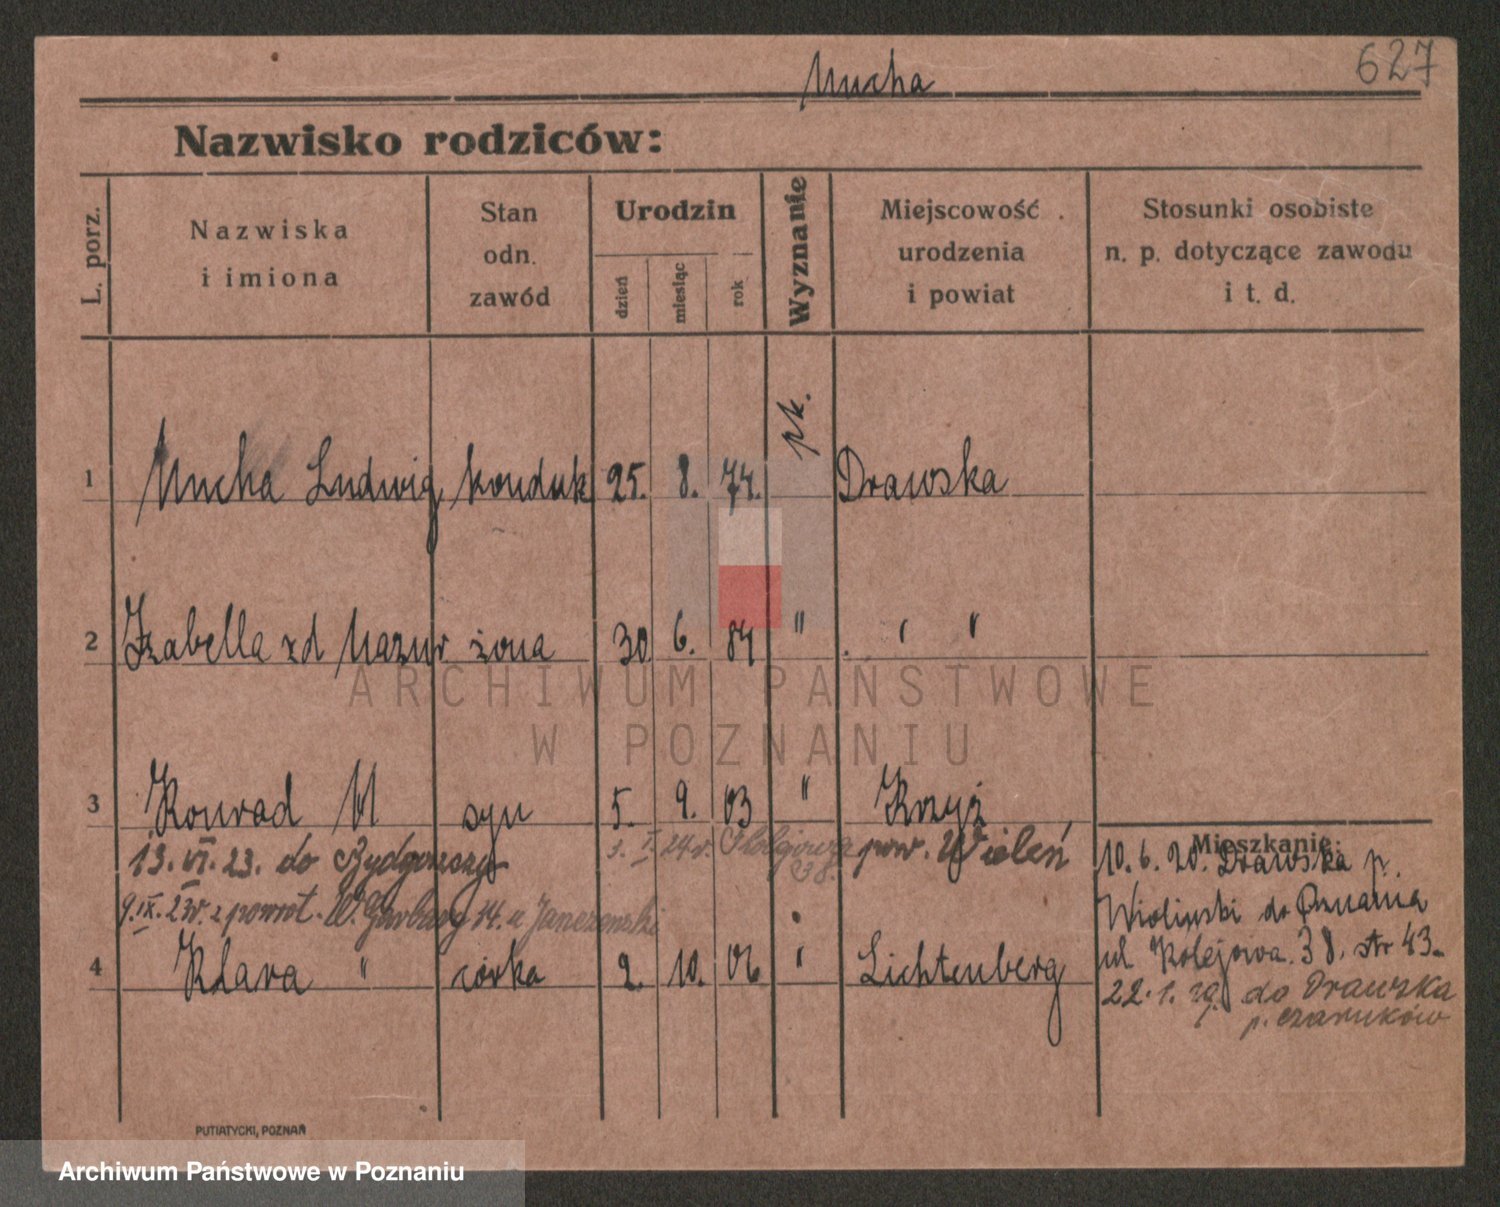 627
Mucha
Nazwisko rodziców:
L. porz.
Nazwiska
i imiona
Stan
odn.
zawód
Urodzin
dzień
miesiąc
rok
Wyznanie
Miejscowość
urodzenia
i powiat
Stosunki osobiste
n. p. dotyczące zawodu
i t. d.
1 Mucha Ludwig konduk 25. 8. 74. rk. Drawska
2 Izabella zd Mazur żona 30. 6. 84 " " "
3 Konrad M syn 5. 9. 03 " Krzyż
13. VI. 23. do Bydgoszczy
pow. Wieleń
9. IX. 23r. z powrot. W. Garbary 14. u Janczewski
4 Klara " córka 2. 10. 06 " Lichtenberg
Mieszkanie:
10. 6. 20. Drawska p.
do Poznania
ul Kolejowa. 38. str 43.
22. 1. do Drawska
p. Czarnków
PUTIATYCKI, POZNAŃ
ARCHIWUM PAŃSTWOWE
W POZNANIU
Archiwum Państwowe w Poznaniu